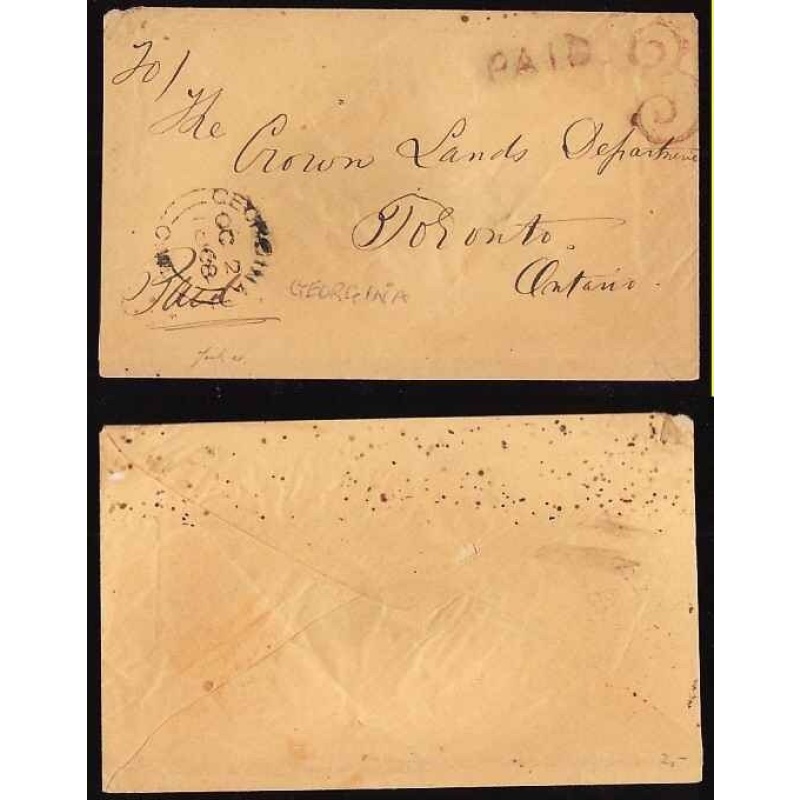 To/
PAID
The
Crown Lands Department
Toronto.
Ontario.
GEORGINA
OC 24
1868
ONT
Paid
GEORGINA
2,-